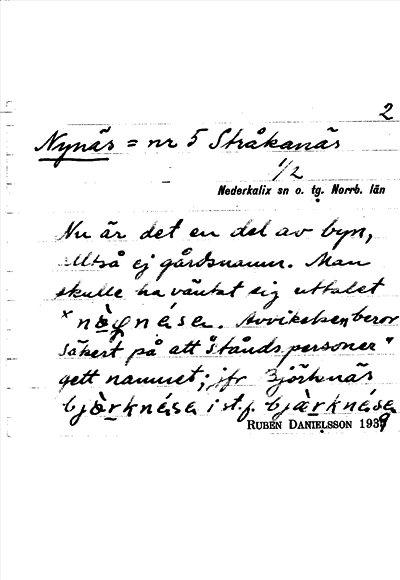 2
Nynäs = nr 5 Stråkanäs
1/2
Nederkalix sn o. tg. Norrb. län
Nu är det en del av byn,
alltså ej gårdsnamn. Man
skulle ha väntat sig uttalet
Avvikelsen beror
säkert på att "ståndspersoner"
gett namnet; jfr Björknäs
i st. f.
RUBEN DANIELSSON 1939